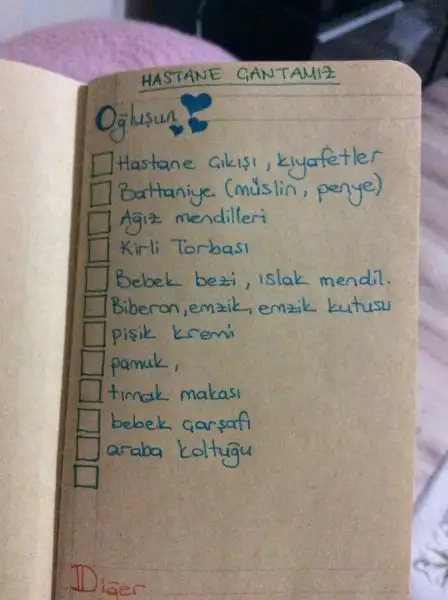 HASTANE ÇANTAMIZ
Oğluşun
Hastane Çıkışı, kıyafetler
Battaniye (müslin, penye)
Ağız mendilleri
Kirli Torbası
Bebek bezi, ıslak mendil.
Biberon, emzik, emzik kutusu
pişik kremi
pamuk,
tırnak makası
bebek çarşafı
araba koltuğu
Diğer